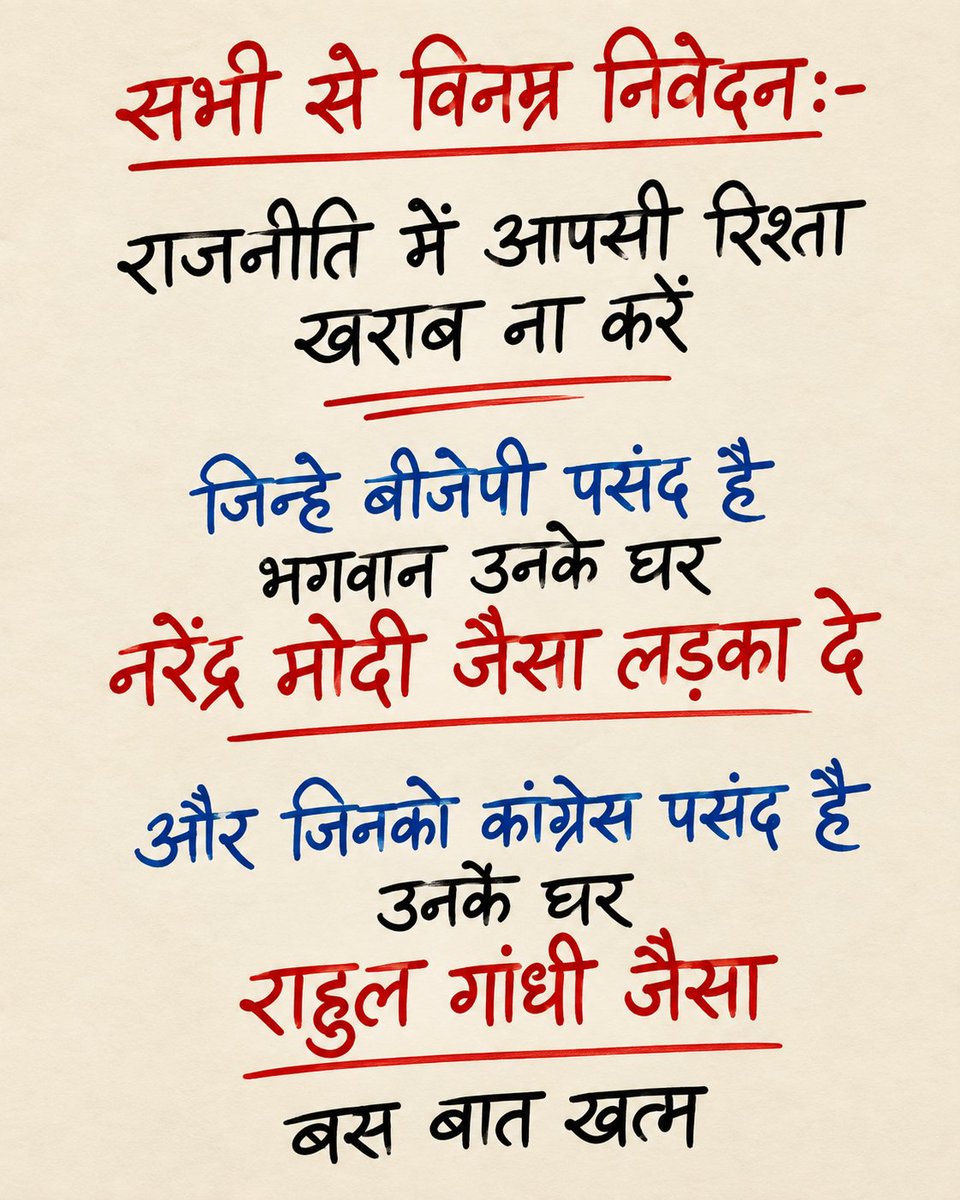 सभी से विनम्र निवेदन:-
राजनीति में आपसी रिश्ता
खराब ना करें
जिन्हे बीजेपी पसंद है
भगवान उनके घर
नरेंद्र मोदी जैसा लड़का दे
और जिनको कांग्रेस पसंद है
उनके घर
राहुल गांधी जैसा
बस बात खत्म